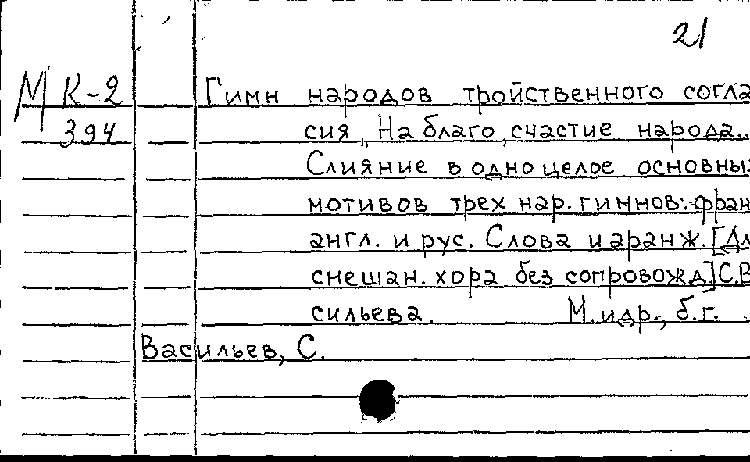 21
М К-2 Гимн народов тройственного согла
394 сия, На благо, счастие народа.
Слияние в одно целое основных
мотивов трех нар. гимнов: фран
англ. и рус. Слова и аранж. [Дл
смешан. хора без сопровожд] С.В
сильева. М. и др., б.г.
Васильев, С.